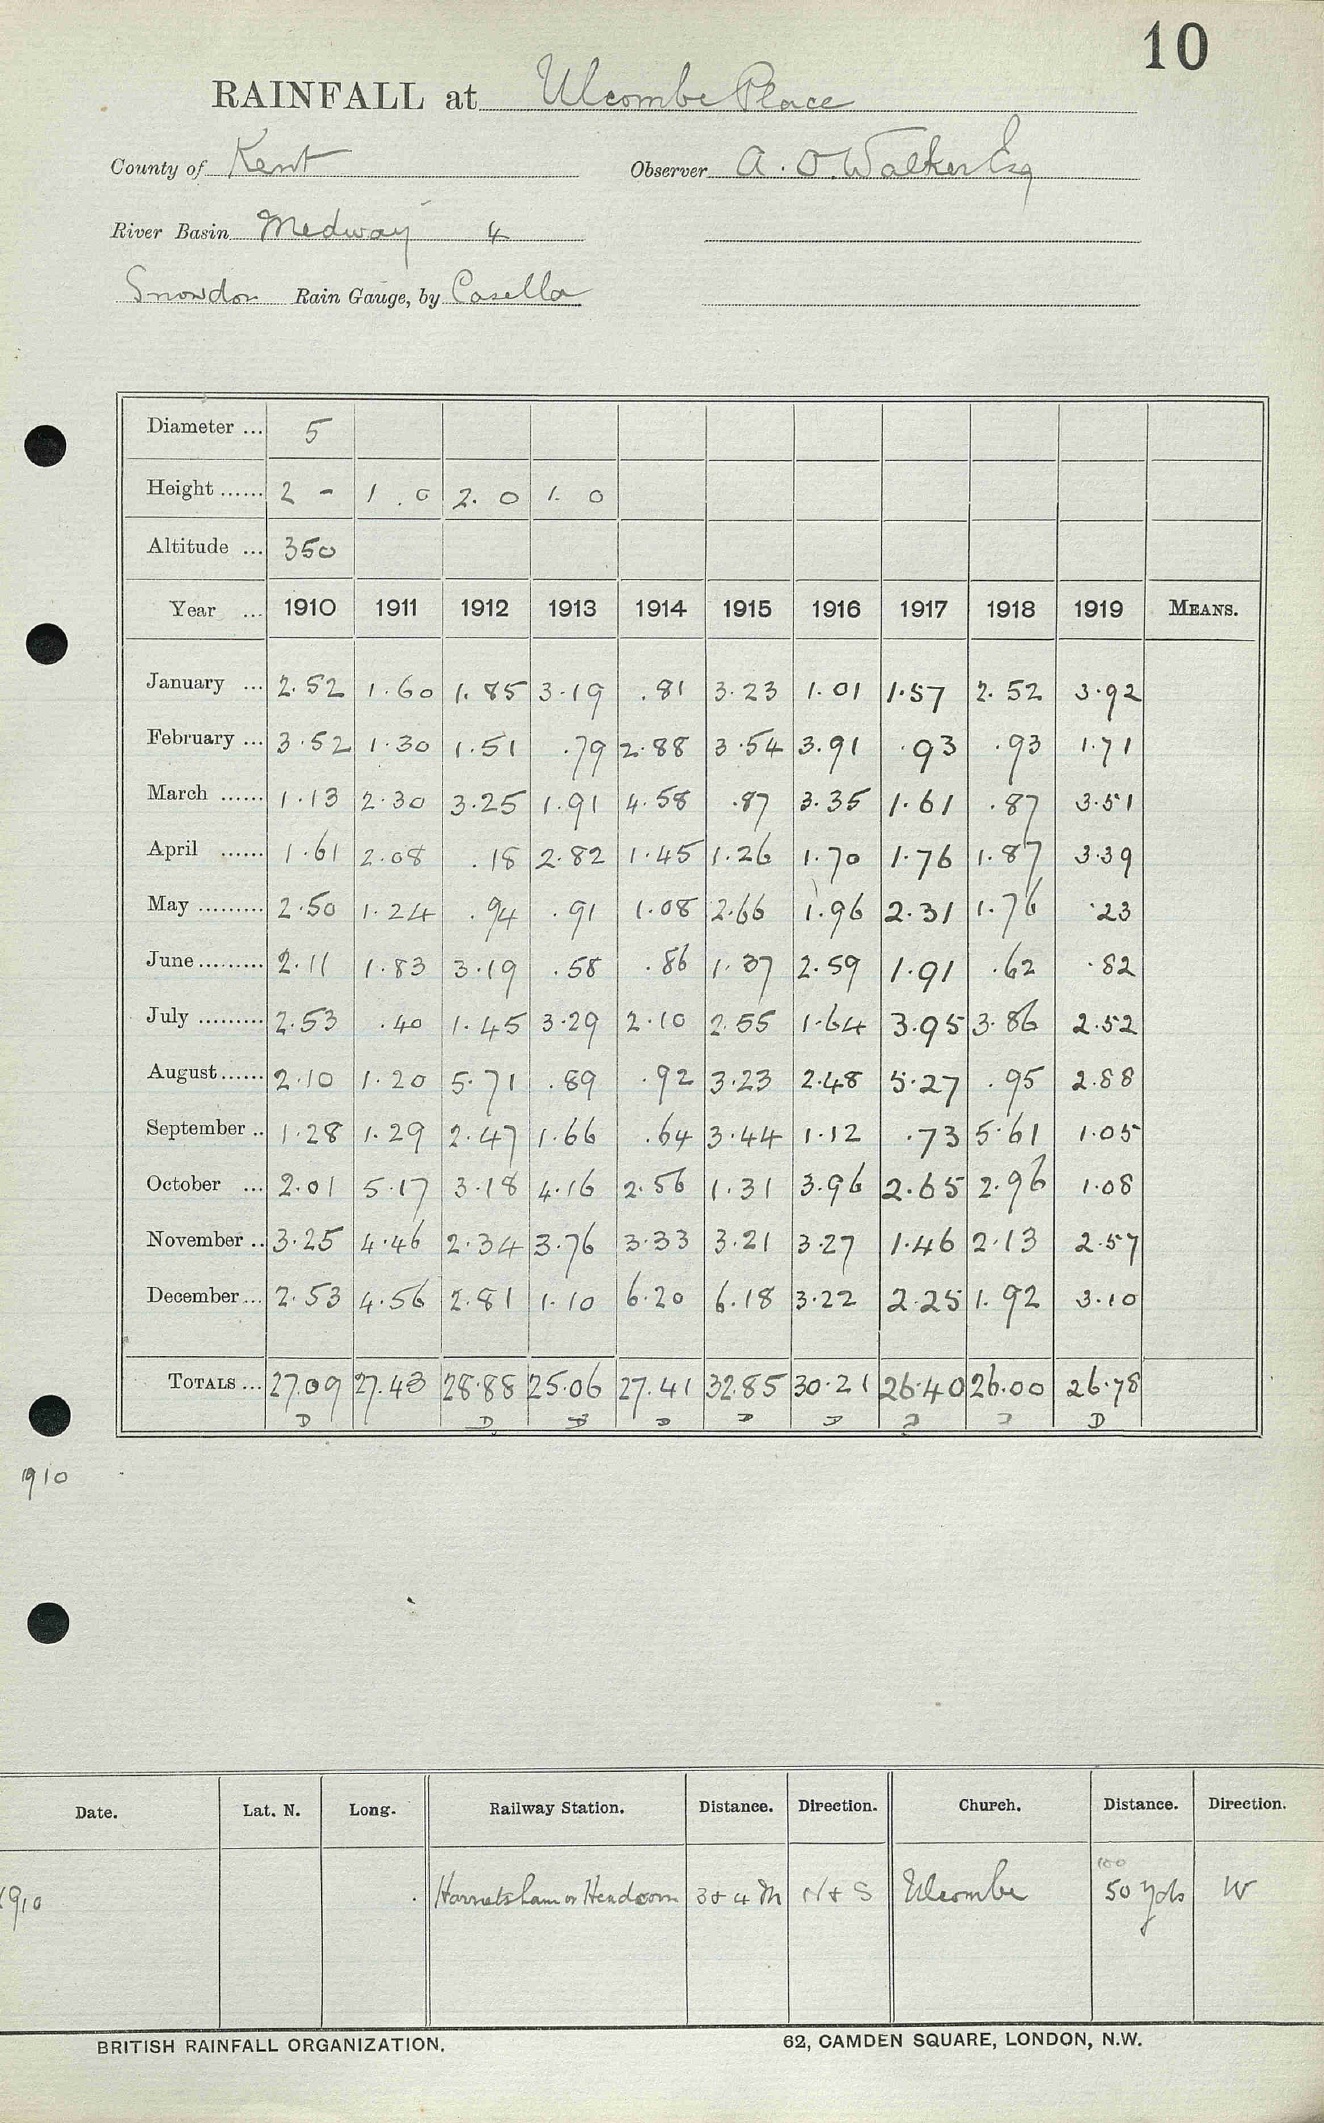 10
RAINFALL at Ulcombe Place
County of Kent Observer A. O. Walker Esq
River Basin Medway 4
Snowdon Rain Gauge, by Casella
Diameter ... 5
Height ...... 2 - 1.0 2.0 1.0
Altitude ... 350
Year ... 1910 1911 1912 1913 1914 1915 1916 1917 1918 1919 MEANS.
January ... 2.52 1.60 1.85 3.19 .81 3.23 1.01 1.57 2.52 3.92
February ... 3.52 1.30 1.51 .79 2.88 3.54 3.91 .93 .93 1.71
March ...... 1.13 2.30 3.25 1.91 4.58 .87 3.35 1.61 .87 3.51
April ...... 1.61 2.08 .18 2.82 1.45 1.26 1.70 1.76 1.87 3.39
May ......... 2.50 1.24 .94 .91 1.08 2.66 1.96 2.31 1.76 .23
June ......... 2.11 1.83 3.19 .58 .86 1.37 2.59 1.91 .62 .82
July ......... 2.53 .40 1.45 3.29 2.10 2.55 1.64 3.95 3.86 2.52
August ...... 2.10 1.20 5.71 .89 .92 3.23 2.48 5.27 .95 2.88
September .. 1.28 1.29 2.47 1.66 .64 3.44 1.12 .73 5.61 1.05
October ... 2.01 5.17 3.18 4.16 2.56 1.31 3.96 2.65 2.96 1.08
November .. 3.25 4.46 2.34 3.76 3.33 3.21 3.27 1.46 2.13 2.57
December ... 2.53 4.56 2.81 1.10 6.20 6.18 3.22 2.25 1.92 3.10
TOTALS ... 27.09 27.43 28.88 25.06 27.41 32.85 30.21 26.40 26.00 26.78
D D D D D D D D D
1910
Date. Lat. N. Long. Railway Station. Distance. Direction. Church. Distance. Direction.
100
1910 Harrietsham or Headcorn 3 & 4 M N & S Ulcombe 50 yds W
BRITISH RAINFALL ORGANIZATION. 62, CAMDEN SQUARE, LONDON, N.W.